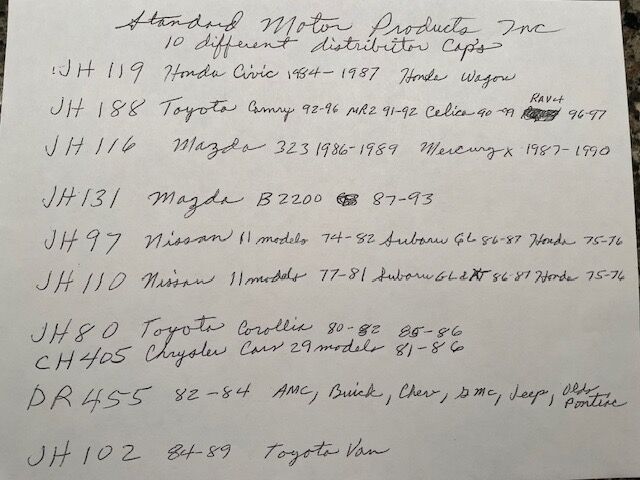 Standard Motor Products Inc
10 different distribittor Caps
JH 119 Honda Civic 1984-1987 Honda Wagon
JH 188 Toyota Camry 92-96 MR2 91-92 Celica 90-99 RAV4 96-97
JH 116 Mazda 323 1986-1989 Mercury x 1987-1990
JH 131 Mazda B2200 87-93
JH 97 Nissan 11 models 74-82 Subaru GL 86-87 Honda 75-76
JH 110 Nissan 11 models 77-81 Subaru GL & XT 86-87 Honda 75-76
JH 80 Toyota Corollia 80-82 85-86
CH 405 Chrysler Cars 29 models 81-86
DR 455 82-84 AMC, Buick, Chev, GMC, Jeep, Olds Pontiac
JH 102 84-89 Toyota Van